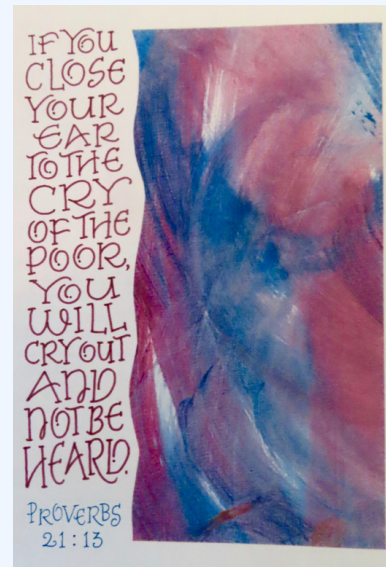 IF YOU
CLOSE
YOUR
EAR
TO THE
CRY
OF THE
POOR,
YOU
WILL
CRY OUT
AND
NOT BE
HEARD.
PROVERBS
21:13